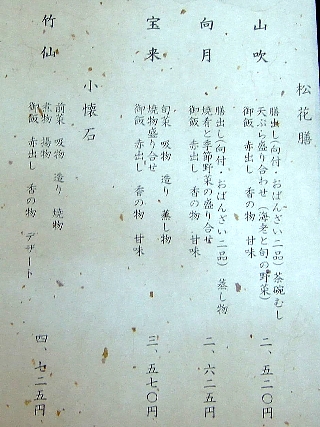 松花膳
山吹
膳出し(向付・おばんざい二品)茶碗むし
天ぷら盛り合わせ(海老と旬の野菜)
御飯 赤出し 香の物
二、五二〇円
向月
膳出し(向付・おばんざい二品)蒸し物
焼肴と季節野菜の盛り合せ
御飯 赤出し 香の物 甘味
二、六二五円
宝来
旬菜 吸物 造り 蒸し物
焼物盛り合せ
御飯 赤出し 香の物 甘味
三、五七〇円
小懐石
竹仙
前菜 吸物 造り 焼物
煮物 揚物
御飯 赤出し 香の物 デザート
四、七二五円